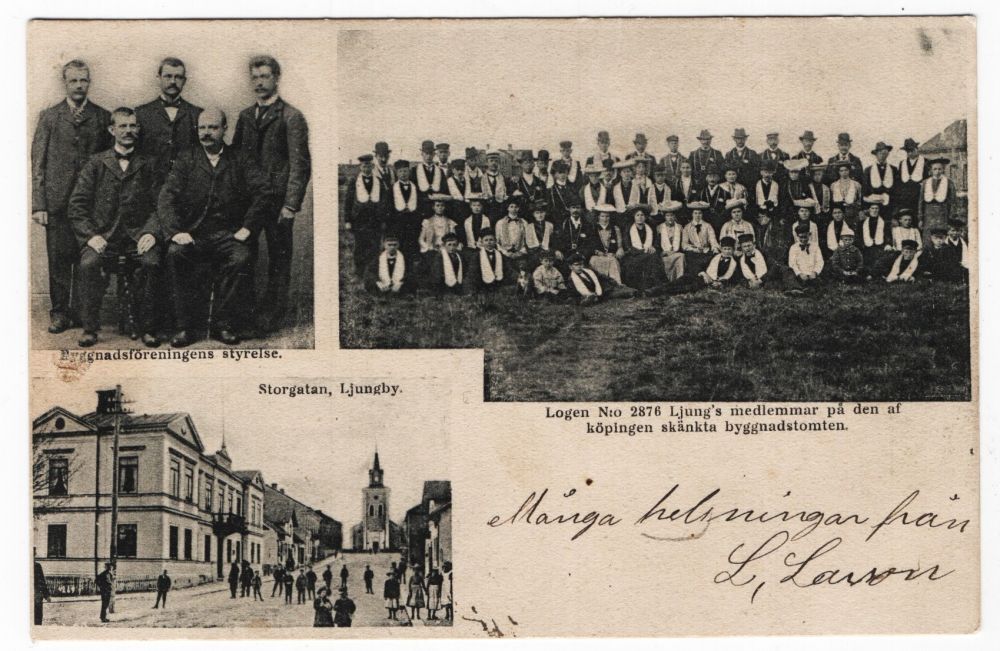 Byggnadsföreningens styrelse.
Storgatan, Ljungby.
Logen N:o 2876 Ljung's medlemmar på den af
köpingen skänkta byggnadstomten.
Många helsningar från
L, Larson